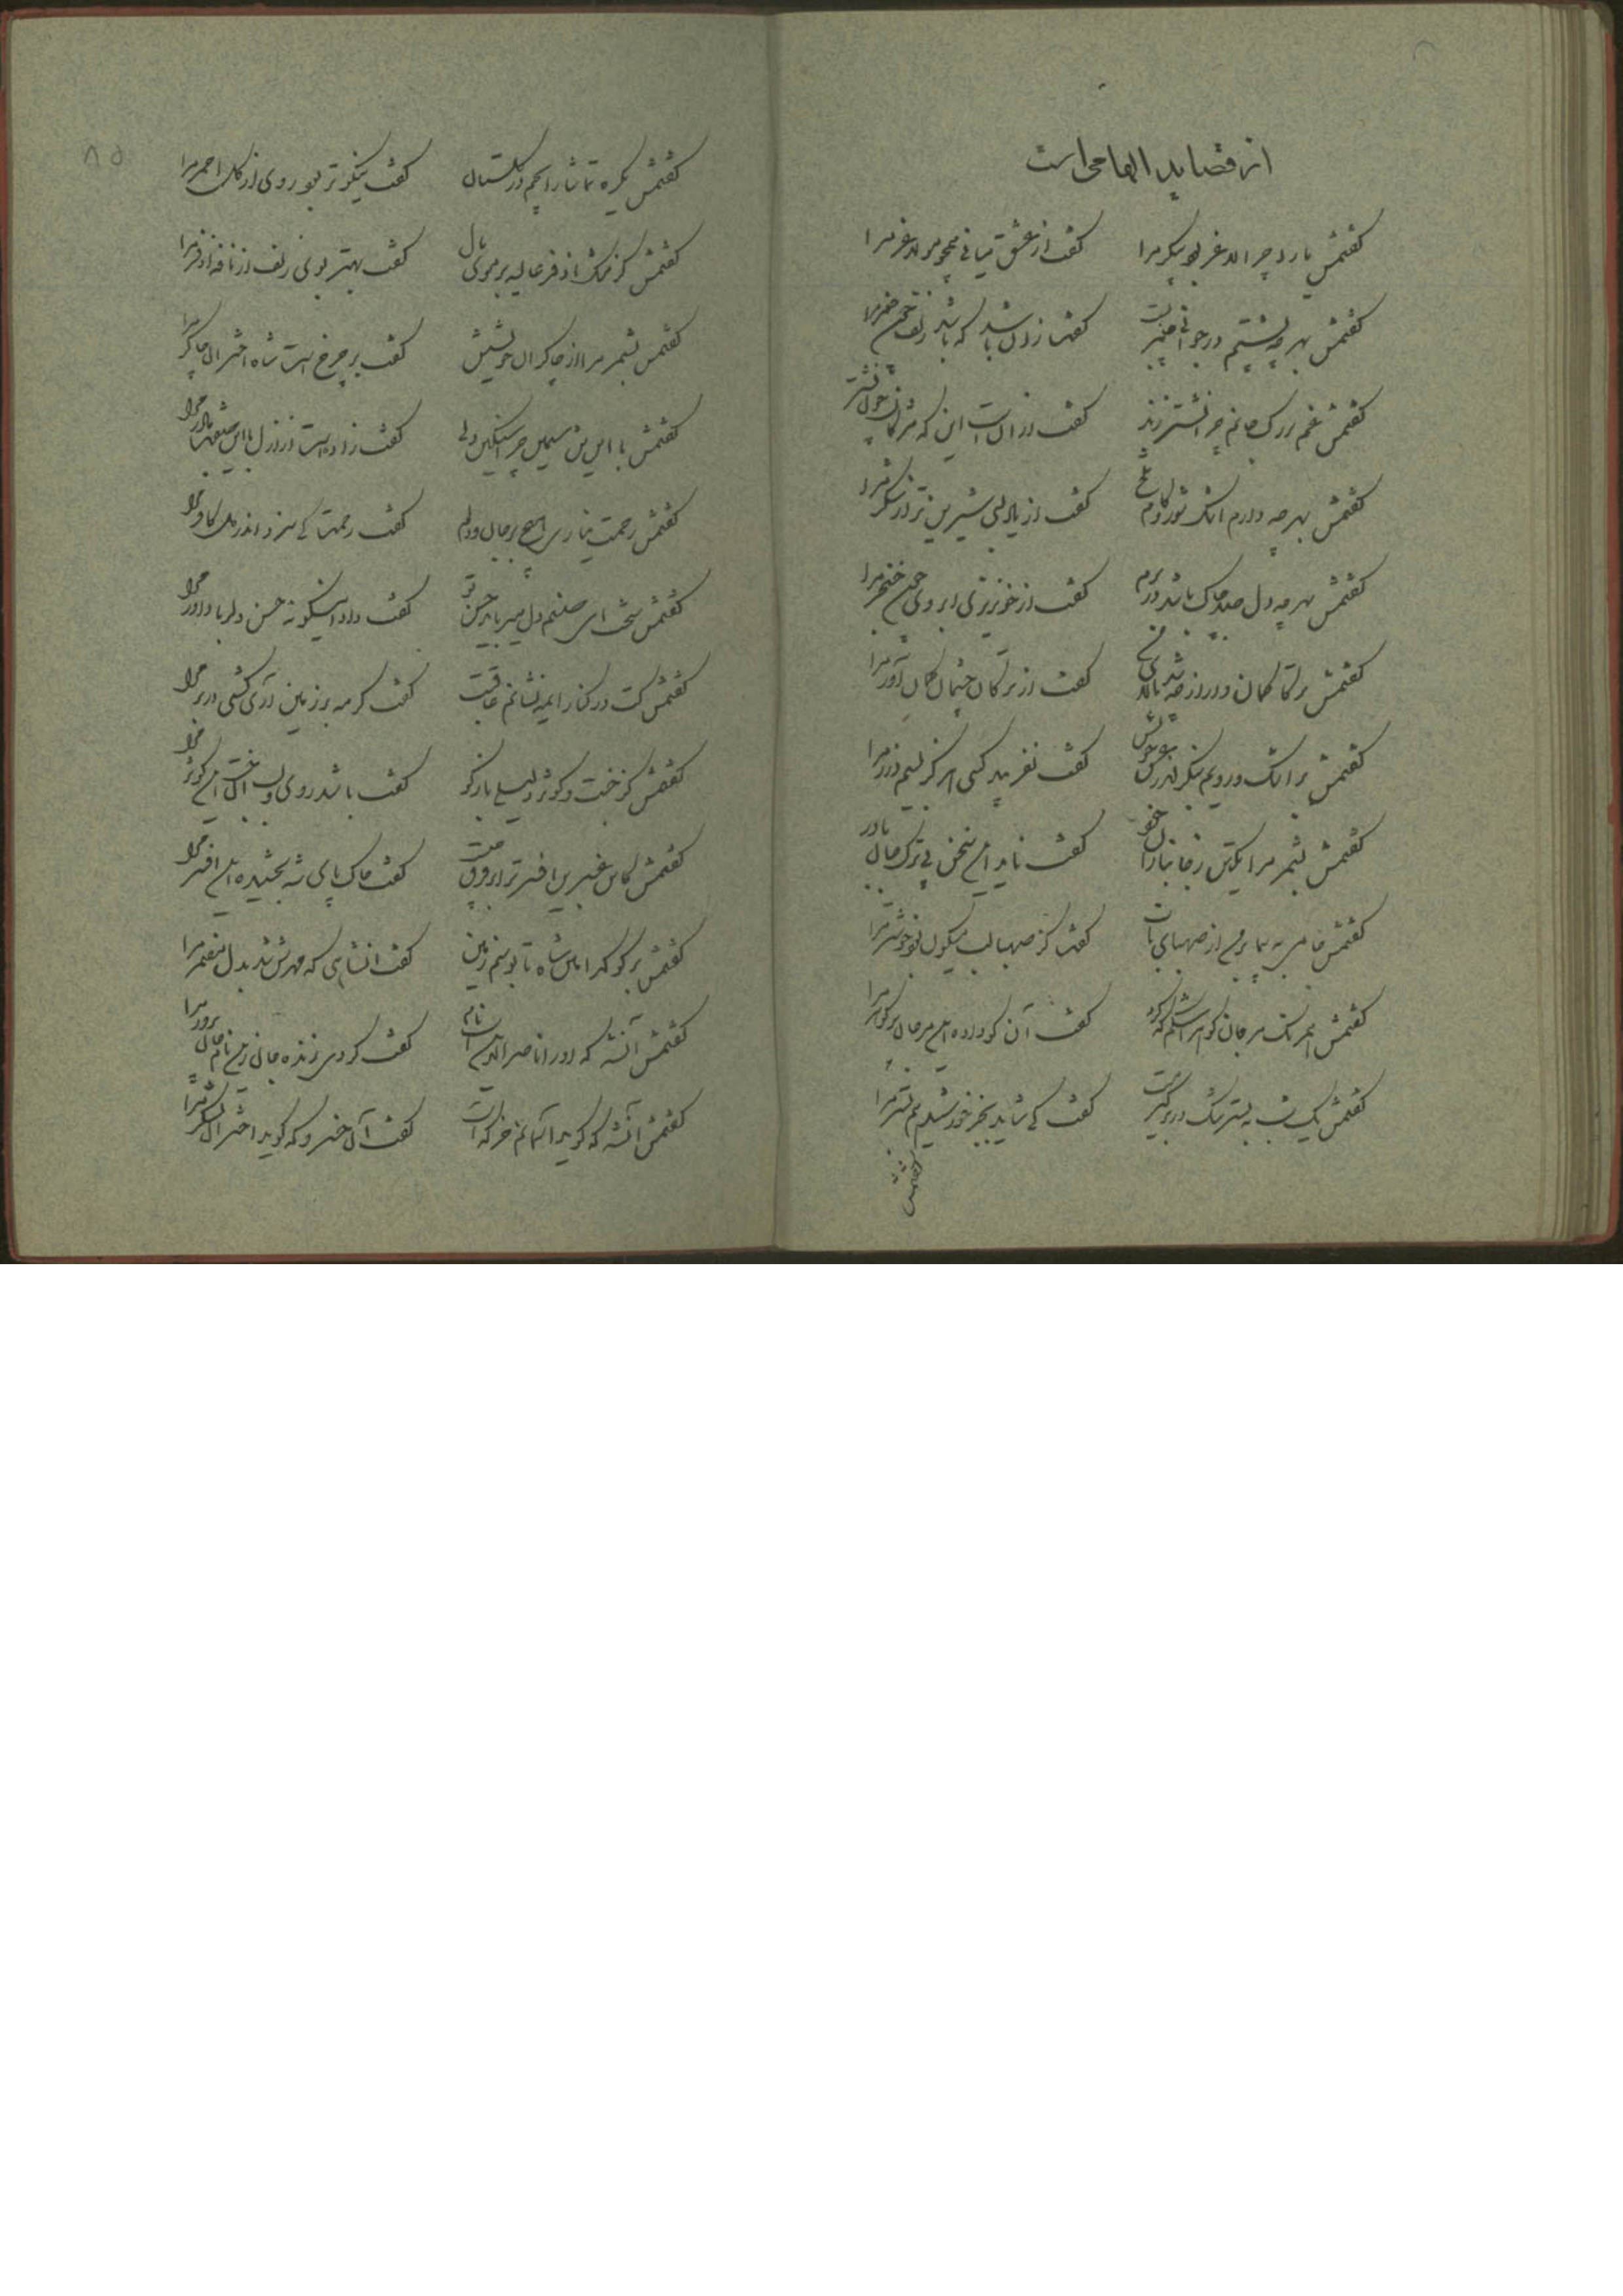 از قصاید الهامی است
گفتمش دارد چرا لاغر پیکر مرا گفت از عشق میانی همچو مو لاغر مرا
گفتمش بهر چه پشتم در جوانی گفتا زان باشد که باشد زلف خم مرا
گفتمش غم بر رگ جانم چرا نشتر زند گفت از آن است این که مژگان چون نشتر
گفتمش بهر چه دارم اشک شور و کام تلخ گفت از یاد لبی شیرین تر از شکر مرا
گفتمش بهر چه دل صد چاک باشد در برم گفت از خونریزی ابروی چون خنجر مرا
گفتمش گفت از ترکان چشمان مرا
گفتمش بر اشک و رویم بنگر گفت نفریبد کسی هرگز به سیم و زر مرا
گفتمش بشمر مرا یکتن ز جانبازان خود گفت ناید این سخن بی ترک جان باور
گفتمش از صهبای ناب گفت کز صهبا لب میگون بود خوشتر مرا
گفتمش گفت آن کو داده این مرجان پر گوهر مرا
گفتمش یک شب به بستر تنگ در بر گیرمت گفت کی شاید بجز خورشید هم بستر مرا
گفتمش
۸۵
گفتمش یکره تماشا را بچم در گلستان گفت نیکوتر بود روی از گل احمر مرا
گفتمش کز مشک اذفر غالیه بر موی مال گفت بهتر بوی زلف از نافه اذفر مرا
گفتمش بشمر مرا از چاکران خویشتن گفت بر چرخ است شاه اختران چاکر مرا
گفتمش با این تن سیمین چرا سنگین دلی گفت زاده است از ازل با این مادر مرا
گفتمش رحمت نیاری هیچ بر جان و دلم گفت رحمت کی سزد اندر دل کافر مرا
گفتمش سخت ای صنم دل میبرد حسن تو گفت داد اینگونه حسن دلربا داور مرا
گفتمش کت در کنار ای مه نشانم عاقبت گفت گر مه بر زمین آری کشی در بر مرا
گفتمش کز جنت و کوثر دلیلی باز گو گفت باشد روی و لب آن جنت این کوثر مرا
گفتمش کاین عنبرین افسر ترا بر فرق چیست گفت خاک پای شه بخشیده این افسر مرا
گفتمش بر گو کدامین شاه تا بوسم زمین گفت آن شاهی که مهرش شد بدل مضمر مرا
گفتمش آن شه که او را ناصرالدین است نام گفت کردی زنده جان زین نام جان پرور مرا
گفتمش آن شه که گوید آسمانم خرگه است گفت آن خسرو که گوید اختران لشکر مرا